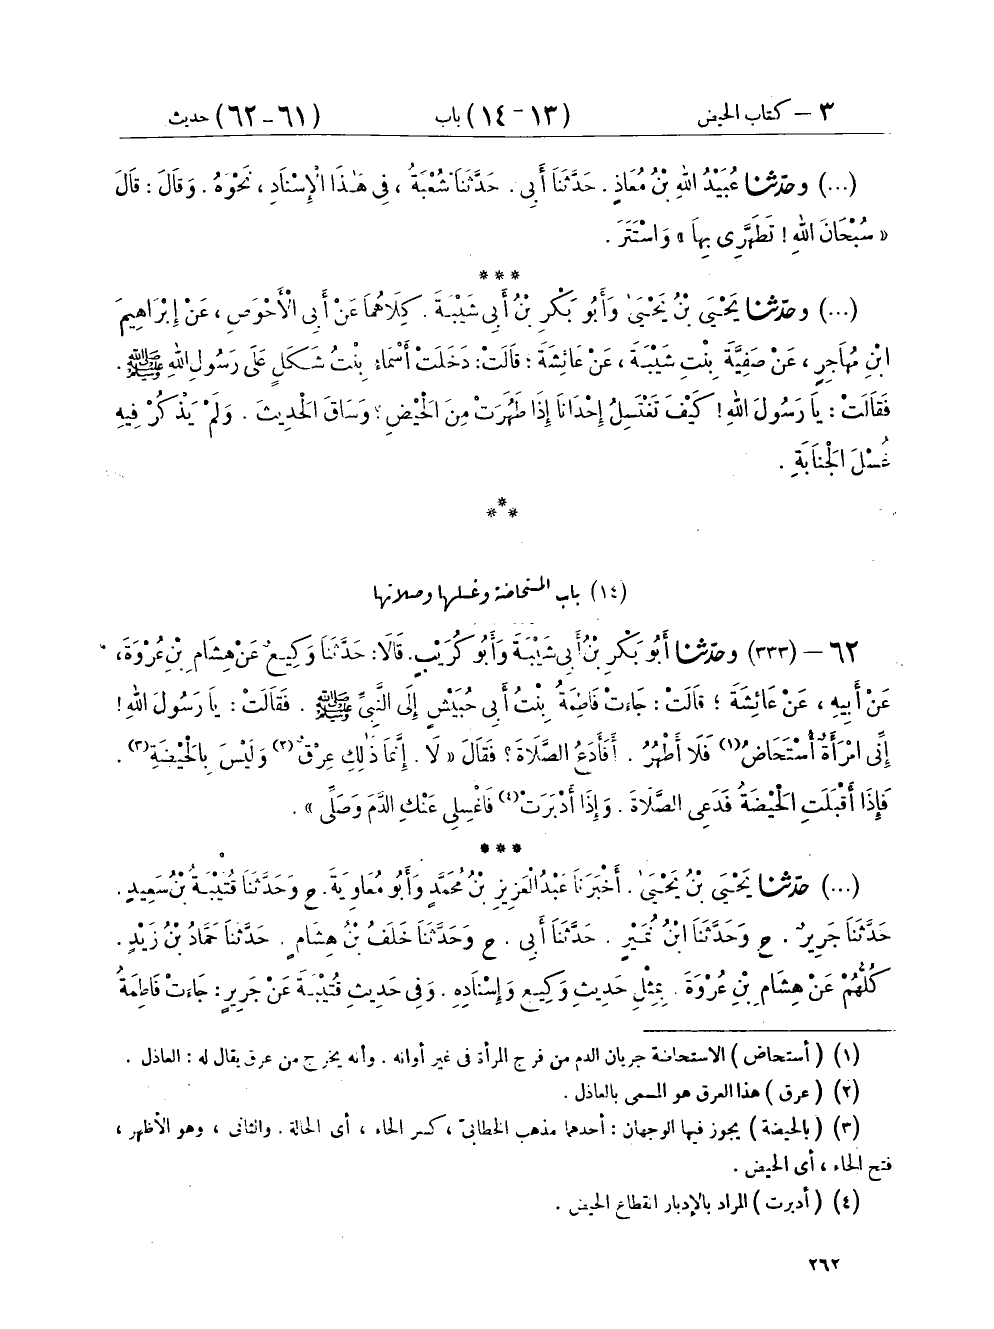 ٣ – كتاب الحيض (١٣ – ١٤) باب (٦١ – ٦٢) حديث
(...) وحَدَّثَنَا عُبَيْدُ اللهِ بْنُ مُعَاذٍ . حَدَّثَنَا أَبِي . حَدَّثَنَا شُعْبَةُ ، فِي هَٰذَا الْإِسْنَادِ ، نَحْوَهُ . وَقَالَ : قَالَ
« سُبْحَانَ اللهِ ! تَطَهَّرِى بِهَا » وَاسْتَتَرَ .
***
(...) وحَدَّثَنَا يَحْيَىٰ بْنُ يَحْيَىٰ وَأَبُو بَكْرِ بْنُ أَبِي شَيْبَةَ . كِلَاهُمَا عَنْ أَبِي الْأَحْوَصِ ، عَنْ إِبْرَاهِيمَ
ابْنِ مُهَاجِرٍ ، عَنْ صَفِيَّةَ بِنْتِ شَيْبَةَ ، عَنْ عَائِشَةَ ؛ قَالَتْ : دَخَلَتْ أَسْمَاءُ بِنْتُ شَكَلٍ عَلَى رَسُولِ اللهِ ﷺ .
فَقَالَتْ : يَا رَسُولَ اللهِ ! كَيْفَ تَغْتَسِلُ إِحْدَانَا إِذَا طَهُرَتْ مِنَ الْحَيْضِ ؟ وَسَاقَ الْحَدِيثَ . وَلَمْ يَذْكُرْ فِيهِ
غُسْلَ الْجَنَابَةِ .
***
(١٤) باب المستحاضة وغسلها وصلاتها
٦٢ – (٣٣٣) وحَدَّثَنَا أَبُو بَكْرِ بْنُ أَبِي شَيْبَةَ وَأَبُو كُرَيْبٍ . قَالَا : حَدَّثَنَا وَكِيعٌ عَنْ هِشَامِ بْنِ عُرْوَةَ ،
عَنْ أَبِيهِ ، عَنْ عَائِشَةَ ؛ قَالَتْ : جَاءَتْ فَاطِمَةُ بِنْتُ أَبِي حُبَيْشٍ إِلَى النَّبِيِّ ﷺ . فَقَالَتْ : يَا رَسُولَ اللهِ !
إِنِّي امْرَأَةٌ أُسْتَحَاضُ(١) فَلَا أَطْهُرُ . أَفَأَدَعُ الصَّلَاةَ ؟ فَقَالَ « لَا . إِنَّمَا ذَٰلِكِ عِرْقٌ(٢) وَلَيْسَ بِالْحَيْضَةِ(٣) .
فَإِذَا أَقْبَلَتِ الْحَيْضَةُ فَدَعِى الصَّلَاةَ . وَإِذَا أَدْبَرَتْ(٤) فَاغْسِلِى عَنْكِ الدَّمَ وَصَلِّى » .
***
(...) حَدَّثَنَا يَحْيَىٰ بْنُ يَحْيَىٰ . أَخْبَرَنَا عَبْدُ الْعَزِيزِ بْنُ مُحَمَّدٍ وَأَبُو مُعَاوِيَةَ . ح وَحَدَّثَنَا قُتَيْبَةُ بْنُ سَعِيدٍ .
حَدَّثَنَا جَرِيرٌ . ح وَحَدَّثَنَا ابْنُ نُمَيْرٍ . حَدَّثَنَا أَبِي . ح وَحَدَّثَنَا خَلَفُ بْنُ هِشَامٍ . حَدَّثَنَا حَمَّادُ بْنُ زَيْدٍ .
كُلُّهُمْ عَنْ هِشَامِ بْنِ عُرْوَةَ . بِمِثْلِ حَدِيثِ وَكِيعٍ وَإِسْنَادِهِ . وَفِي حَدِيثِ قُتَيْبَةَ عَنْ جَرِيرٍ : جَاءَتْ فَاطِمَةُ
(١) ( أستحاض ) الاستحاضة جريان الدم من فرج المرأة فى غير أوانه . وأنه يخرج من عرق يقال له : العاذل .
(٢) ( عرق ) هذا العرق هو المسمى بالعاذل .
(٣) ( بالحيضة ) يجوز فيها الوجهان : أحدهما مذهب الخطابىّ ، كسر الحاء ، أى الحالة . والثانى ، وهو الأظهر ،
فتح الحاء ، أى الحيض .
(٤) ( أدبرت ) المراد بالإدبار انقطاع الحيض .
٢٦٢